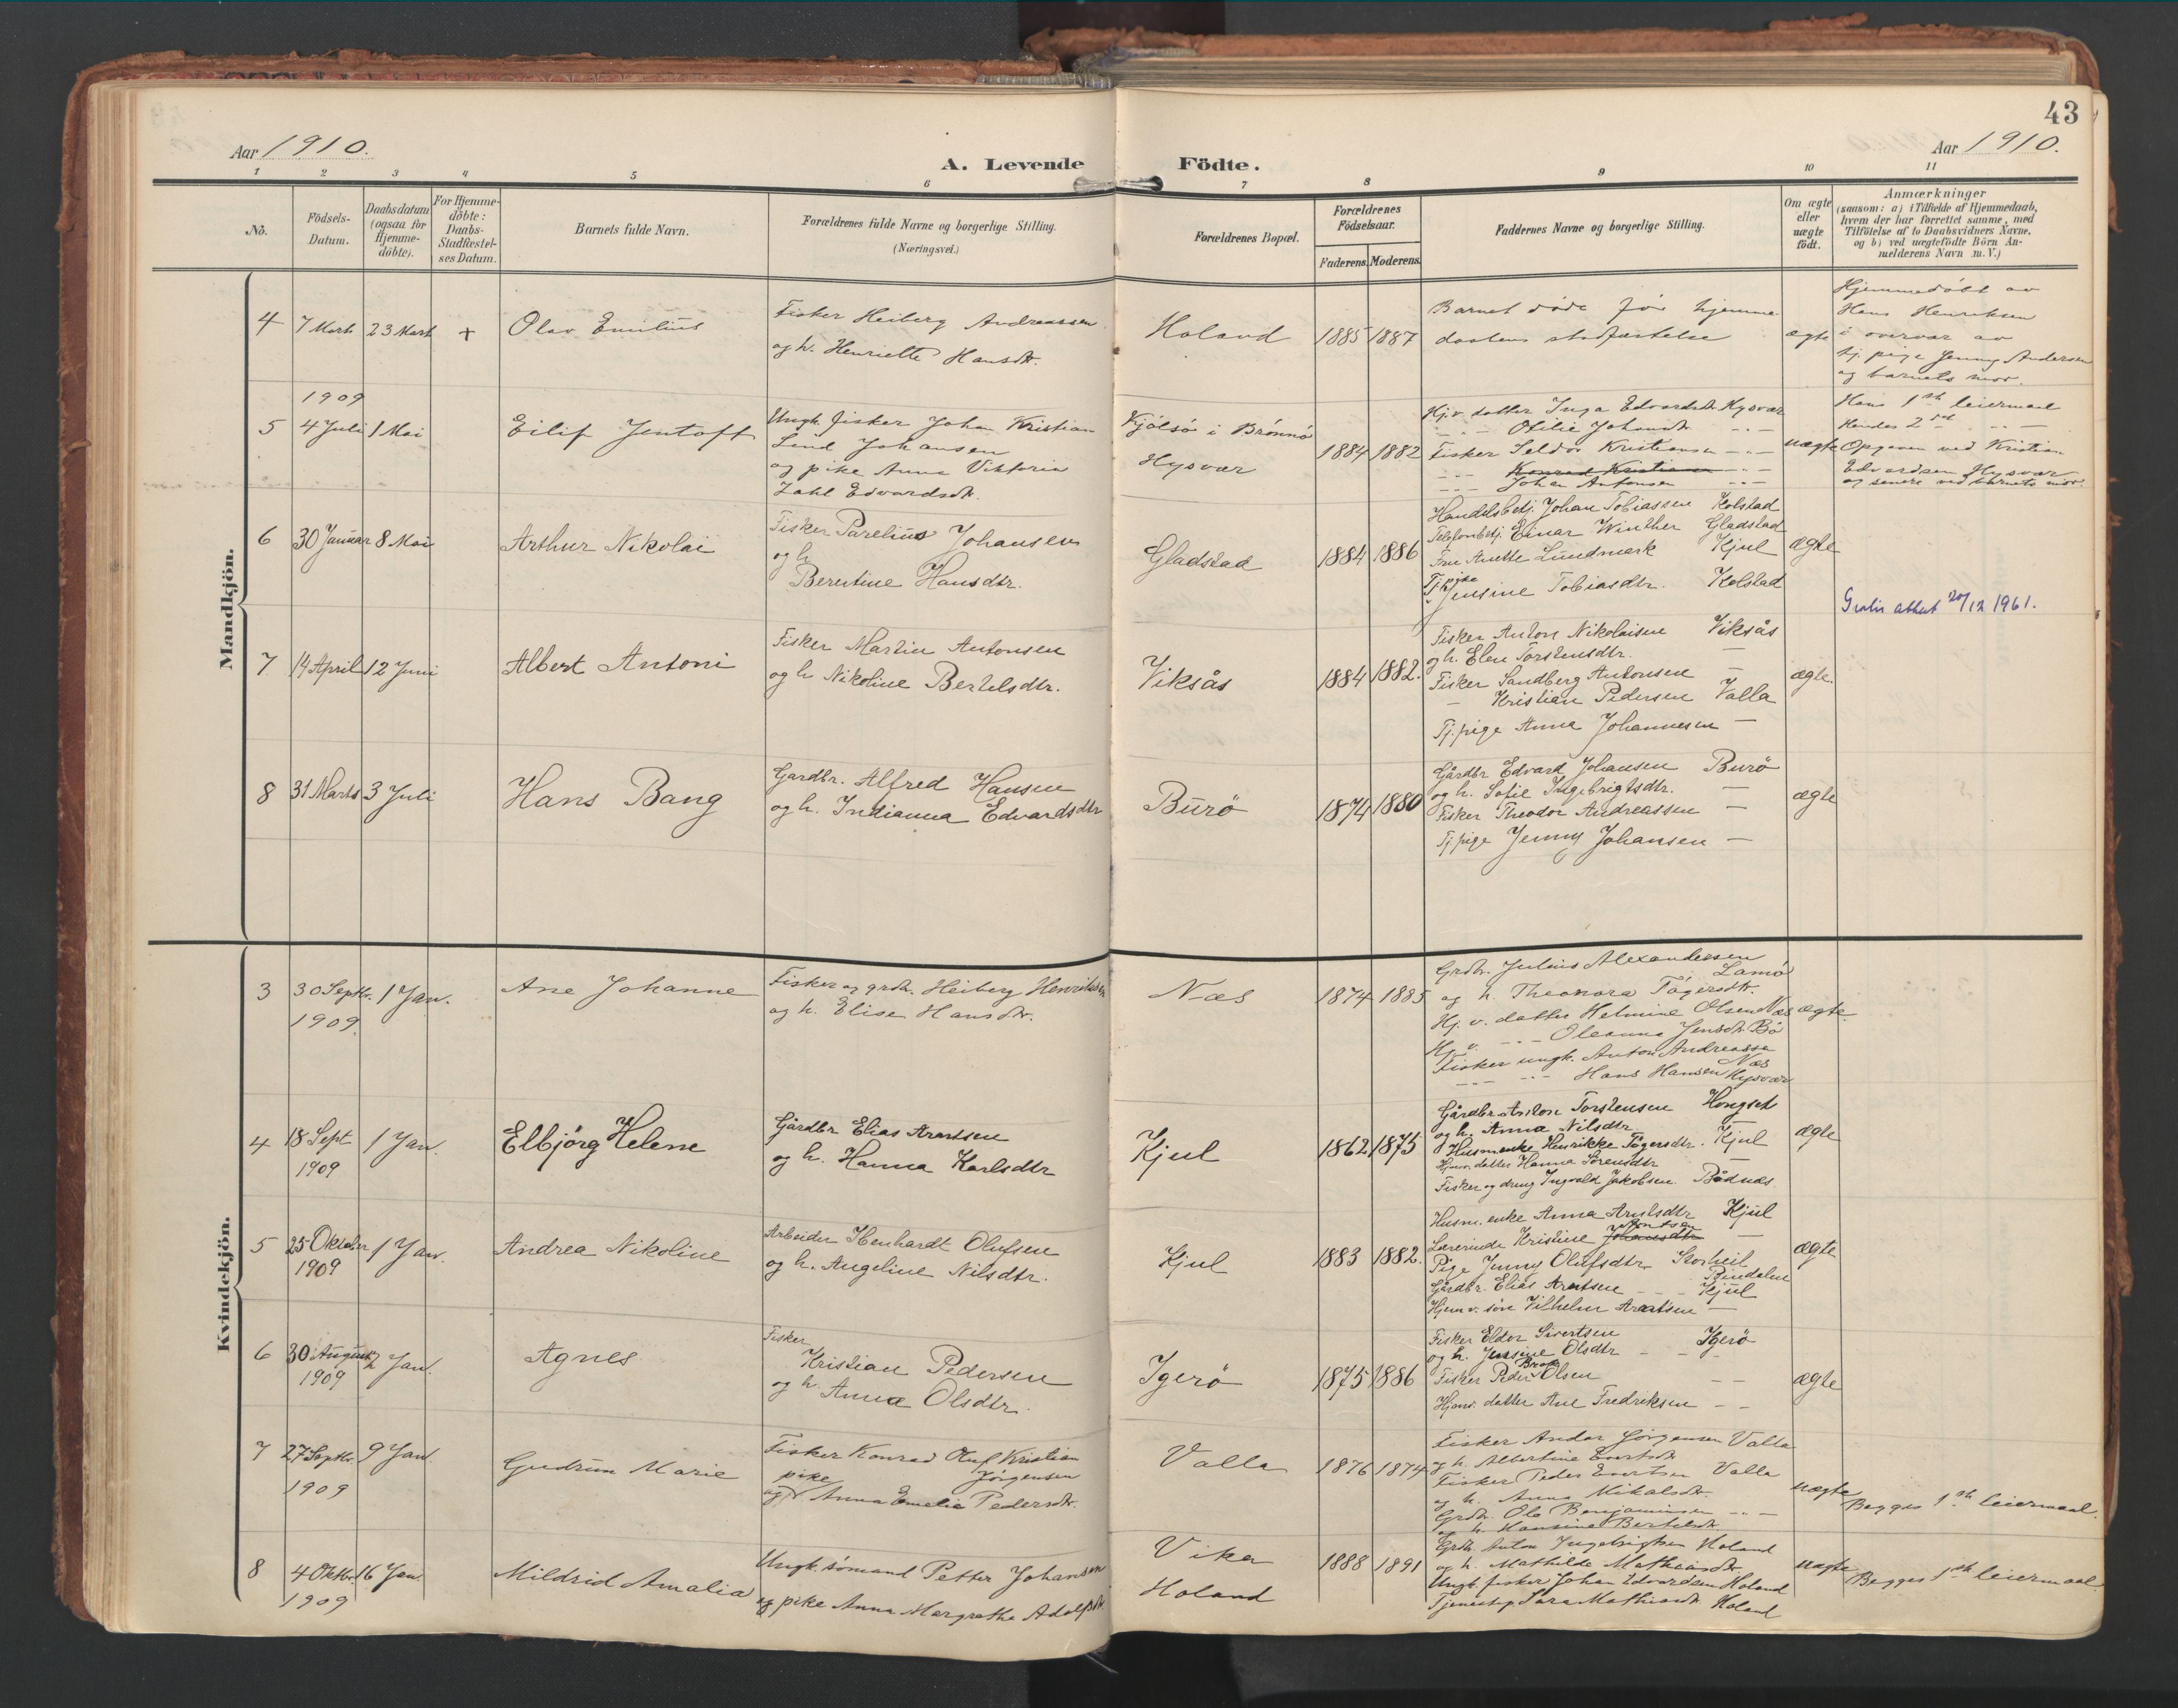 43
Aar 1910.
A. Levende Födte.
Aar 1910.
1 2 3 4 5 6 7 8 9 10 11
No.
Födsels-
Datum.
Daabsdatum
(ogsaa for
Hjemme-
döbte).
For Hjemme-
döbte:
Daabs-
Stadfæstel-
ses Datum.
Barnets fulde Navn.
Forældrenes fulde Navne og borgerlige Stilling.
(Næringsvei.)
Forældrenes Bopæl.
Forældrenes
Födselsaar.
Faderens. Moderens.
Faddernes Navne og borgerlige Stilling.
Om ægte
eller
uægte
födt.
Anmærkninger
(saasom: a) i Tilfælde af Hjemmedaab,
hvem der har forrettet samme, med
Tilföielse af to Daabsvidners Navne,
og b) ved uægtefödte Börn An-
melderens Navn m. V.)
Mandkjön.
4
7 Marts
23 Marts
+
Olav Emilius
Fisker Heiberg Andreassen
og h. Henriette Hansdtr.
Holand
1885
1887
Barnet døde før hjemme
daabens stadfæstelse
ægte
Hjemmedöbt av
Hans Henriksen
i overvær av
tj. pige Jenny Andersen
og barnets mor.
5
1909
4 Juli
1 Mai
Eilif Jentoft
Ungk. fisker Johan Kristian
Lind Johansen
og pike Anna Viktoria
Zahl Edvardsdtr.
Kjølsø i Brønnø
Hysvær
1884
1882
Hj.v. datter Inga Edvardsdtr. Hysvær
- - Otilie Johansdtr. - -
Fisker Seldor Kristiansen - -
- - Konrad Kristiansen - -
- - Johan Antonsen - -
uægte
Hans 1ste leiermaal
Hendes 2det - -
Opgaven ved Kristian
Edvardsen Hysvær
og senere ved barnets mor.
6
30 Januar
8 Mai
Arthur Nikolai
Fisker Parelius Johansen
og h.
Berntine Hansdtr.
Gladstad
1884
1886
Handelsbetj. Johan Tobiassen Kolstad
Telefonbetj. Einar Winther Gladstad
Fru Anette Lundmark Kjul
Tj. pige Jensine Tobiasdtr. Kolstad
ægte
Gratis attest 20/12 1961.
7
14 April
12 Juni
Albert Antoni
Fisker Martin Antonsen
og h. Nikoline Bertelsdtr.
Viksås
1884
1882.
Fisker Anton Nikolaisen Viksås
og h. Elen Torstensdtr. -
Fisker Sandberg Antonsen -
- Kristian Pedersen Valla
Tj. pige Anna Johannesen -
ægte.
8
31 Marts
3 Juli
Hans Bang
Gardbr. Alfred Hansen
og h. Indianna Edvardsdtr
Burö
1874
1880
Gårdbr Edvard Johansen Burö
og h. Sofie Ingebrigtsdtr. -
Fisker Theodor Andreassen -
Tj. pige Jenny Johansen -
ægte
Kvindekjön.
3
30 Septbr.
1909
1 Jan.
Ane Johanne
Fisker og grdbr. Heiberg Henriksen
og h. Elise Hansdtr.
Næs
1874
1885
Grdbr. Julius Alexandersen
Lamø
og h. Theonora Tögersdtr.
Hj. v. datter Helmine Olsen Næs
Hj. v. - - Oleanna Jensdtr. Bö
Fisker ungk. Anton Andreassen
Næs
- - - - Hans Hansen Hysvær
ægte.
4
18 Sept
1909
1 Jan.
Elbjörg Helene
Gårdbr Elias Arntsen
og h. Hanna Karlsdtr
Kjul
1862
1875
Gårdbr. Anton Torstensen Hongset
og h. Anna Nilsdtr -
Husm. enke Henrikke Tögersdtr. Kjul
Hjmv. datter Hanna Sörensdtr -
Fisker og dreng Ingvald Jakobsen Bådnæs.
ægte
5
25 Oktober
1909
1 Jan.
Andrea Nikoline
Arbeider Ibenhardt Olufsen
og h. Angeline Nilsdtr.
Kjul
1883
1882.
Husm. enke Anna Arntsdtr Kjul
Lærerinde Kristine Johansdtr Arntsen -
Pige Jenny Olufsdtr. Storheil
Bindalen
Gårdbr. Elias Arntsen - - Kjul
Hjemv. sön Vilhelm Arntsen -
ægte
6
30 August
1909
2 Jan.
Agnes
Fisker
Kristian Pedersen
og h. Anna Olsdtr.
Igerö
1875
1886
Fisker Eldor Sivertsen Igerö
og h. Jensine Olsdtr - -
Fisker Peder Olsen - -
Hjmv. datter Ane Fredriksen - -
ægte
7
27 Septbr.
1909
9 Jan.
Gudrun Marie
Fisker Konrad Oluf Kristian
Jörgensen
og pike Anna Emelie Pedersdtr.
Valla
1876
1874
Fisker Andor Jörgensen Valla
og h. Albertine Evertsdtr.
Fisker Peder Evertsen Valla
og h. Anna Nikolsdtr.
Grdbr. Ole Benjaminsen - -
og h. Hansine Bertelsdtr.
uægte
Begges 1ste leiermaal.
8
4 Oktbr.
1909
16 Jan
Mildrid Amalia
Ungk. sömand Petter Johansen
og pike Anna Margrethe Adolfsdtr.
Vika
Holand
1888
1891
Grdbr. Anton Ingebrigtsen Holand
og h. Mathilde Mathiasdtr.
Ungk. fisker Johan Edvardsen Holand
Tjenestep. Sara Mathiasdtr. Holand
uægte
Begges 1ste leiermaal.